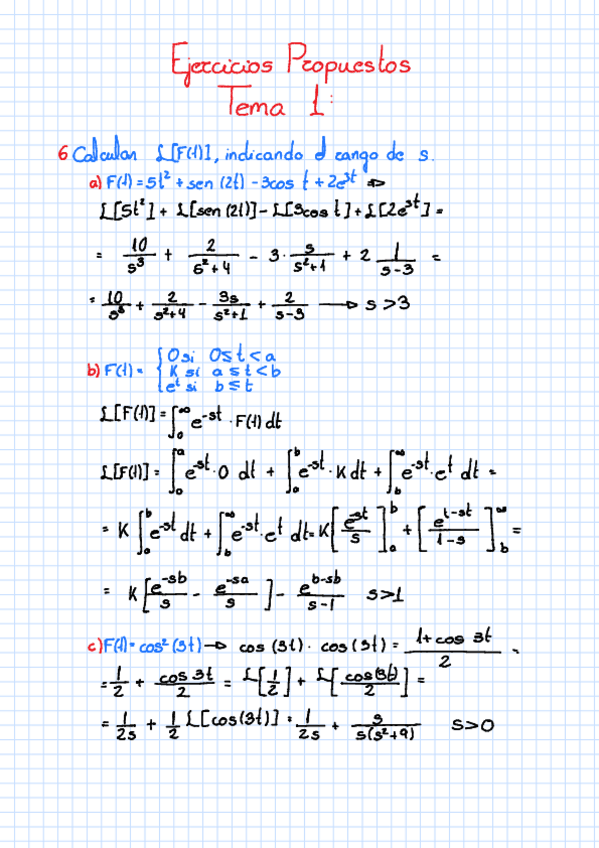 Ejercicios Propuestos
Tema 1:
6 Calcular ℒ[F(t)], indicando el rango de s.
a) F(t) = 5t² + sen (2t) - 3cos t + 2e^{3t} ⇒
ℒ[5t²] + ℒ[sen (2t)] - ℒ[3cos t] + ℒ[2e^{3t}] =
= 10/s³ + 2/(s²+4) - 3 · s/(s²+1) + 2 1/(s-3) =
= 10/s³ + 2/(s²+4) - 3s/(s²+1) + 2/(s-3) → s > 3
b) F(t) = { 0 si 0 ≤ t < a
K si a ≤ t < b
e^t si b ≤ t
ℒ[F(t)] = ∫_0^∞ e^{-st} · F(t) dt
ℒ[F(t)] = ∫_0^a e^{-st} · 0 dt + ∫_a^b e^{-st} · K dt + ∫_b^∞ e^{-st} · e^t dt =
= K ∫_a^b e^{-st} dt + ∫_b^∞ e^{-st} · e^t dt = K [e^{-st}/s]_a^b + [e^{t-st}/(1-s)]_b^∞ =
= K [e^{-sb}/s - e^{-sa}/s] - e^{b-sb}/(s-1) s > 1
c) F(t) = cos² (3t) → cos (3t) · cos (3t) = (1 + cos 3t)/2 =
= 1/2 + cos 3t/2 = ℒ[1/2] + ℒ[cos(3t)/2] =
= 1/2s + 1/2 ℒ[cos(3t)] = 1/2s + s/(s(s²+9)) s > 0